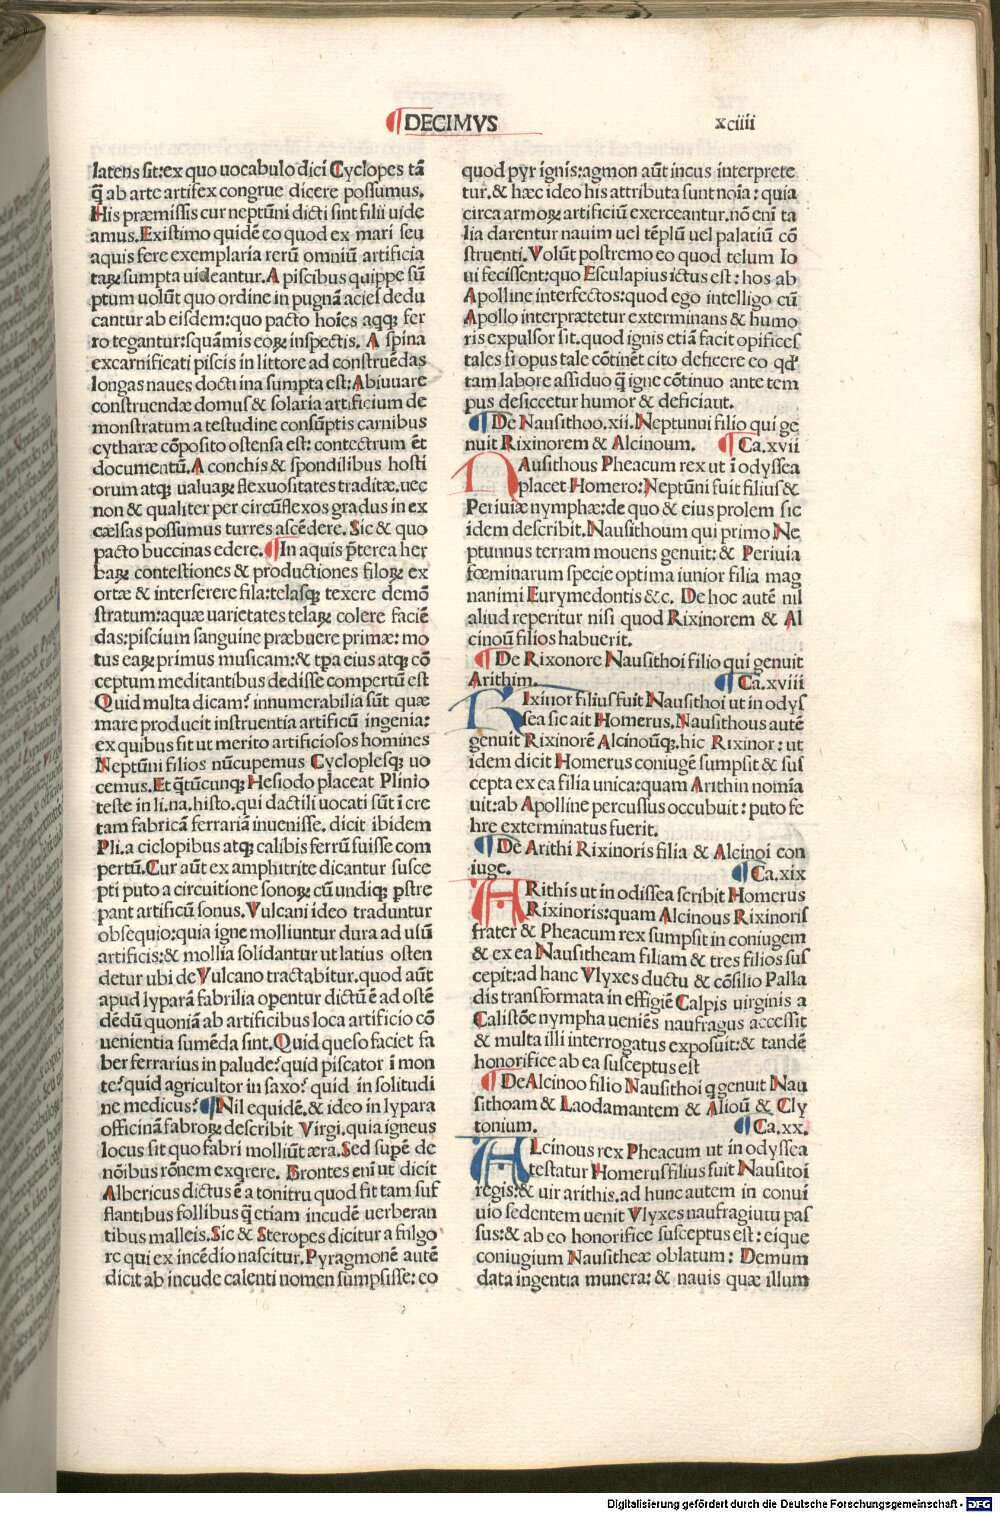 ¶DECIMVS
xciiii
latens sit:ex quo uocabulo dici Cyclopes tā
q̄ ab arte artifex congrue dicere possumus.
His præmissis cur neptūni dicti sint filii uide
amus.Existimo quidē eo quod ex mari seu
aquis fere exemplaria rerū omniū artificia
taꝝ sumpta uideantur.A piscibus quippe sū
ptum uolūt quo ordine in pugnā acies dedu
cantur ab eisdem:quo pacto hoīes aqꝗ fer
ro tegantur:squāmis eoꝝ inspectis. A spina
excarnificati piscis in littore ad construēdas
longas naues docti ina sumpta est:Abiuuare
construendæ domus & solaria artificium de
monstratum a testudine consūptis carnibus
cytharæ cōposito ostensa est: contectrum ēt
documentū.A conchis & spondilibus hosti
orum atqꝫ ualuaꝝ flexuositates traditæ.uec
non & qualiter per circūflexos gradus in ex
cælsas possumus turres ascēdere. Sic & quo
pacto buccinas edere.¶In aquis p̄terea her
baꝝ contestiones & productiones filoꝝ ex
ortæ & interserere fila:telasqꝫ texere demō
stratum:aquæ uarietates telaꝝ colere faciē
das:piscium sanguine præbuere primæ: mo
tus eaꝝ primus musicam:& tp̄a eius atqꝫ cō
ceptum meditantibus dedisse compertū est
Quid multa dicam? innumerabilia sūt quæ
mare producit instruentia artificū ingenia:
ex quibus fit ut merito artificiosos homines
Neptūni filios nūcupemus Cycloplesqꝫ uo
cemus.Et q̄tūcunqꝫ Hesiodo placeat Plinio
teste in li.na.histo.qui dactili uocati sūt ī cre
tam fabricā ferrariā inuenisse. dicit ibidem
Pli.a ciclopibus atqꝫ calibis ferrū fuisse com
pertū.Cur aūt ex amphitrite dicantur susce
pti puto a circuitione sonoꝝ cū undiqꝫ ꝑstre
pant artificū sonus.Vulcani ideo traduntur
obsequio:quia igne molliuntur dura ad usū
artificis:& mollia solidantur ut latius osten
detur ubi de Vulcano tractabitur.quod aūt
apud lyparā fabrilia oꝑentur dictū ē ad ostē
dēdū quoniā ab artificibus loca artificio cō
uenientia sumēda sint.Quid queso faciet fa
ber ferrarius in palude? quid piscator ī mon
te? quid agricultor in saxo? quid in solitudi
ne medicus?¶Nil equidē.& ideo in lypara
officinā fabroꝝ describit Virgi.quia igneus
locus sit quo fabri molliūt æra.Sed supē de
nōibus rōnem exqrere. Brontes enī ut dicit
Albericus dictus ē a tonitru quod fit tam suf
flantibus follibus q̄ etiam incudē uerberan
tibus malleis.Sic & Steropes dicitur a fulgo
re qui ex incēdio nascitur.Pyragmonē autē
dicit ab incude calenti nomen sumpsisse: eo
quod pyr ignis:agmon aūt incus interprete
tur.& hæc ideo his attributa sunt noīa: quia
circa armoꝝ artificiū exerceantur.nō enī ta
lia darentur nauim uel tēplū uel palatiū cō
struenti.Volūt postremo eo quod telum Io
ui fecissent:quo Esculapius ictus est: hos ab
Apolline interfectos:quod ego intelligo cū
Apollo interprætetur exterminans & humo
ris expulsor sit.quod ignis etiā facit opifices
tales si opus tale cōtinēt cito deficere eo qđ
tam labore assiduo q̄ igne cōtinuo ante tem
pus desiccetur humor & deficiaut.
¶De Nausithoo.xii.Neptunni filio qui ge
nuit Rixinorem & Alcinoum. ¶Ca.xvii
NAusithous Pheacum rex ut ī odyssea
placet Homero:Neptūni fuit filius &
Periuiæ nymphæ:de quo & eius prolem sic
idem describit.Nausithoum qui primo Ne
ptunnus terram mouens genuit: & Periuia
fœminarum specie optima iunior filia mag
nanimi Eurymedontis &c. De hoc autē nil
aliud reperitur nisi quod Rixinorem & Al
cinoū filios habuerit.
¶De Rixonore Nausithoi filio qui genuit
Arithim. ¶Ca.xviii
RIxinor filius fuit Nausithoi ut in odys
sea sic ait Homerus.Nausithous autē
genuit Rixinorē Alcinoūqꝫ.hic Rixinor: ut
idem dicit Homerus coniugē sumpsit & sus
cepta ex ea filia unica:quam Arithin nomīa
uit:ab Apolline percussus occubuit: puto fe
hre exterminatus fuerit.
¶De Arithi Rixinoris filia & Alcinoi con
iuge. ¶Ca.xix
ARithis ut in odissea scribit Homerus
Rixinoris:quam Alcinous Rixinoris
frater & Pheacum rex sumpsit in coniugem
& ex ea Nausitheam filiam & tres filios sus
cepit:ad hanc Vlyxes ductu & cōsilio Palla
dis transformata in effigiē Calpis uirginis a
Calistōe nympha ueniēs naufragus accessit
& multa illi interrogatus exposuit:& tandē
honorifice ab ea susceptus est
¶De Alcinoo filio Nausithoi q̄ genuit Nau
sithoam & Laodamantem & Alioū & Cly
tonium. ¶Ca.xx.
ALcinous rex Pheacum ut in odyssea
testatur Homerus filius fuit Nausitoi
regis:& uir arithis.ad hunc autem in conui
uio sedentem uenit Vlyxes naufragiuu pas
sus:& ab eo honorifice susceptus est: eique
coniugium Nausitheæ oblatum: Demum
data ingentia munera: & nauis quæ illum
Digitalisierung gefördert durch die Deutsche Forschungsgemeinschaft - DFG